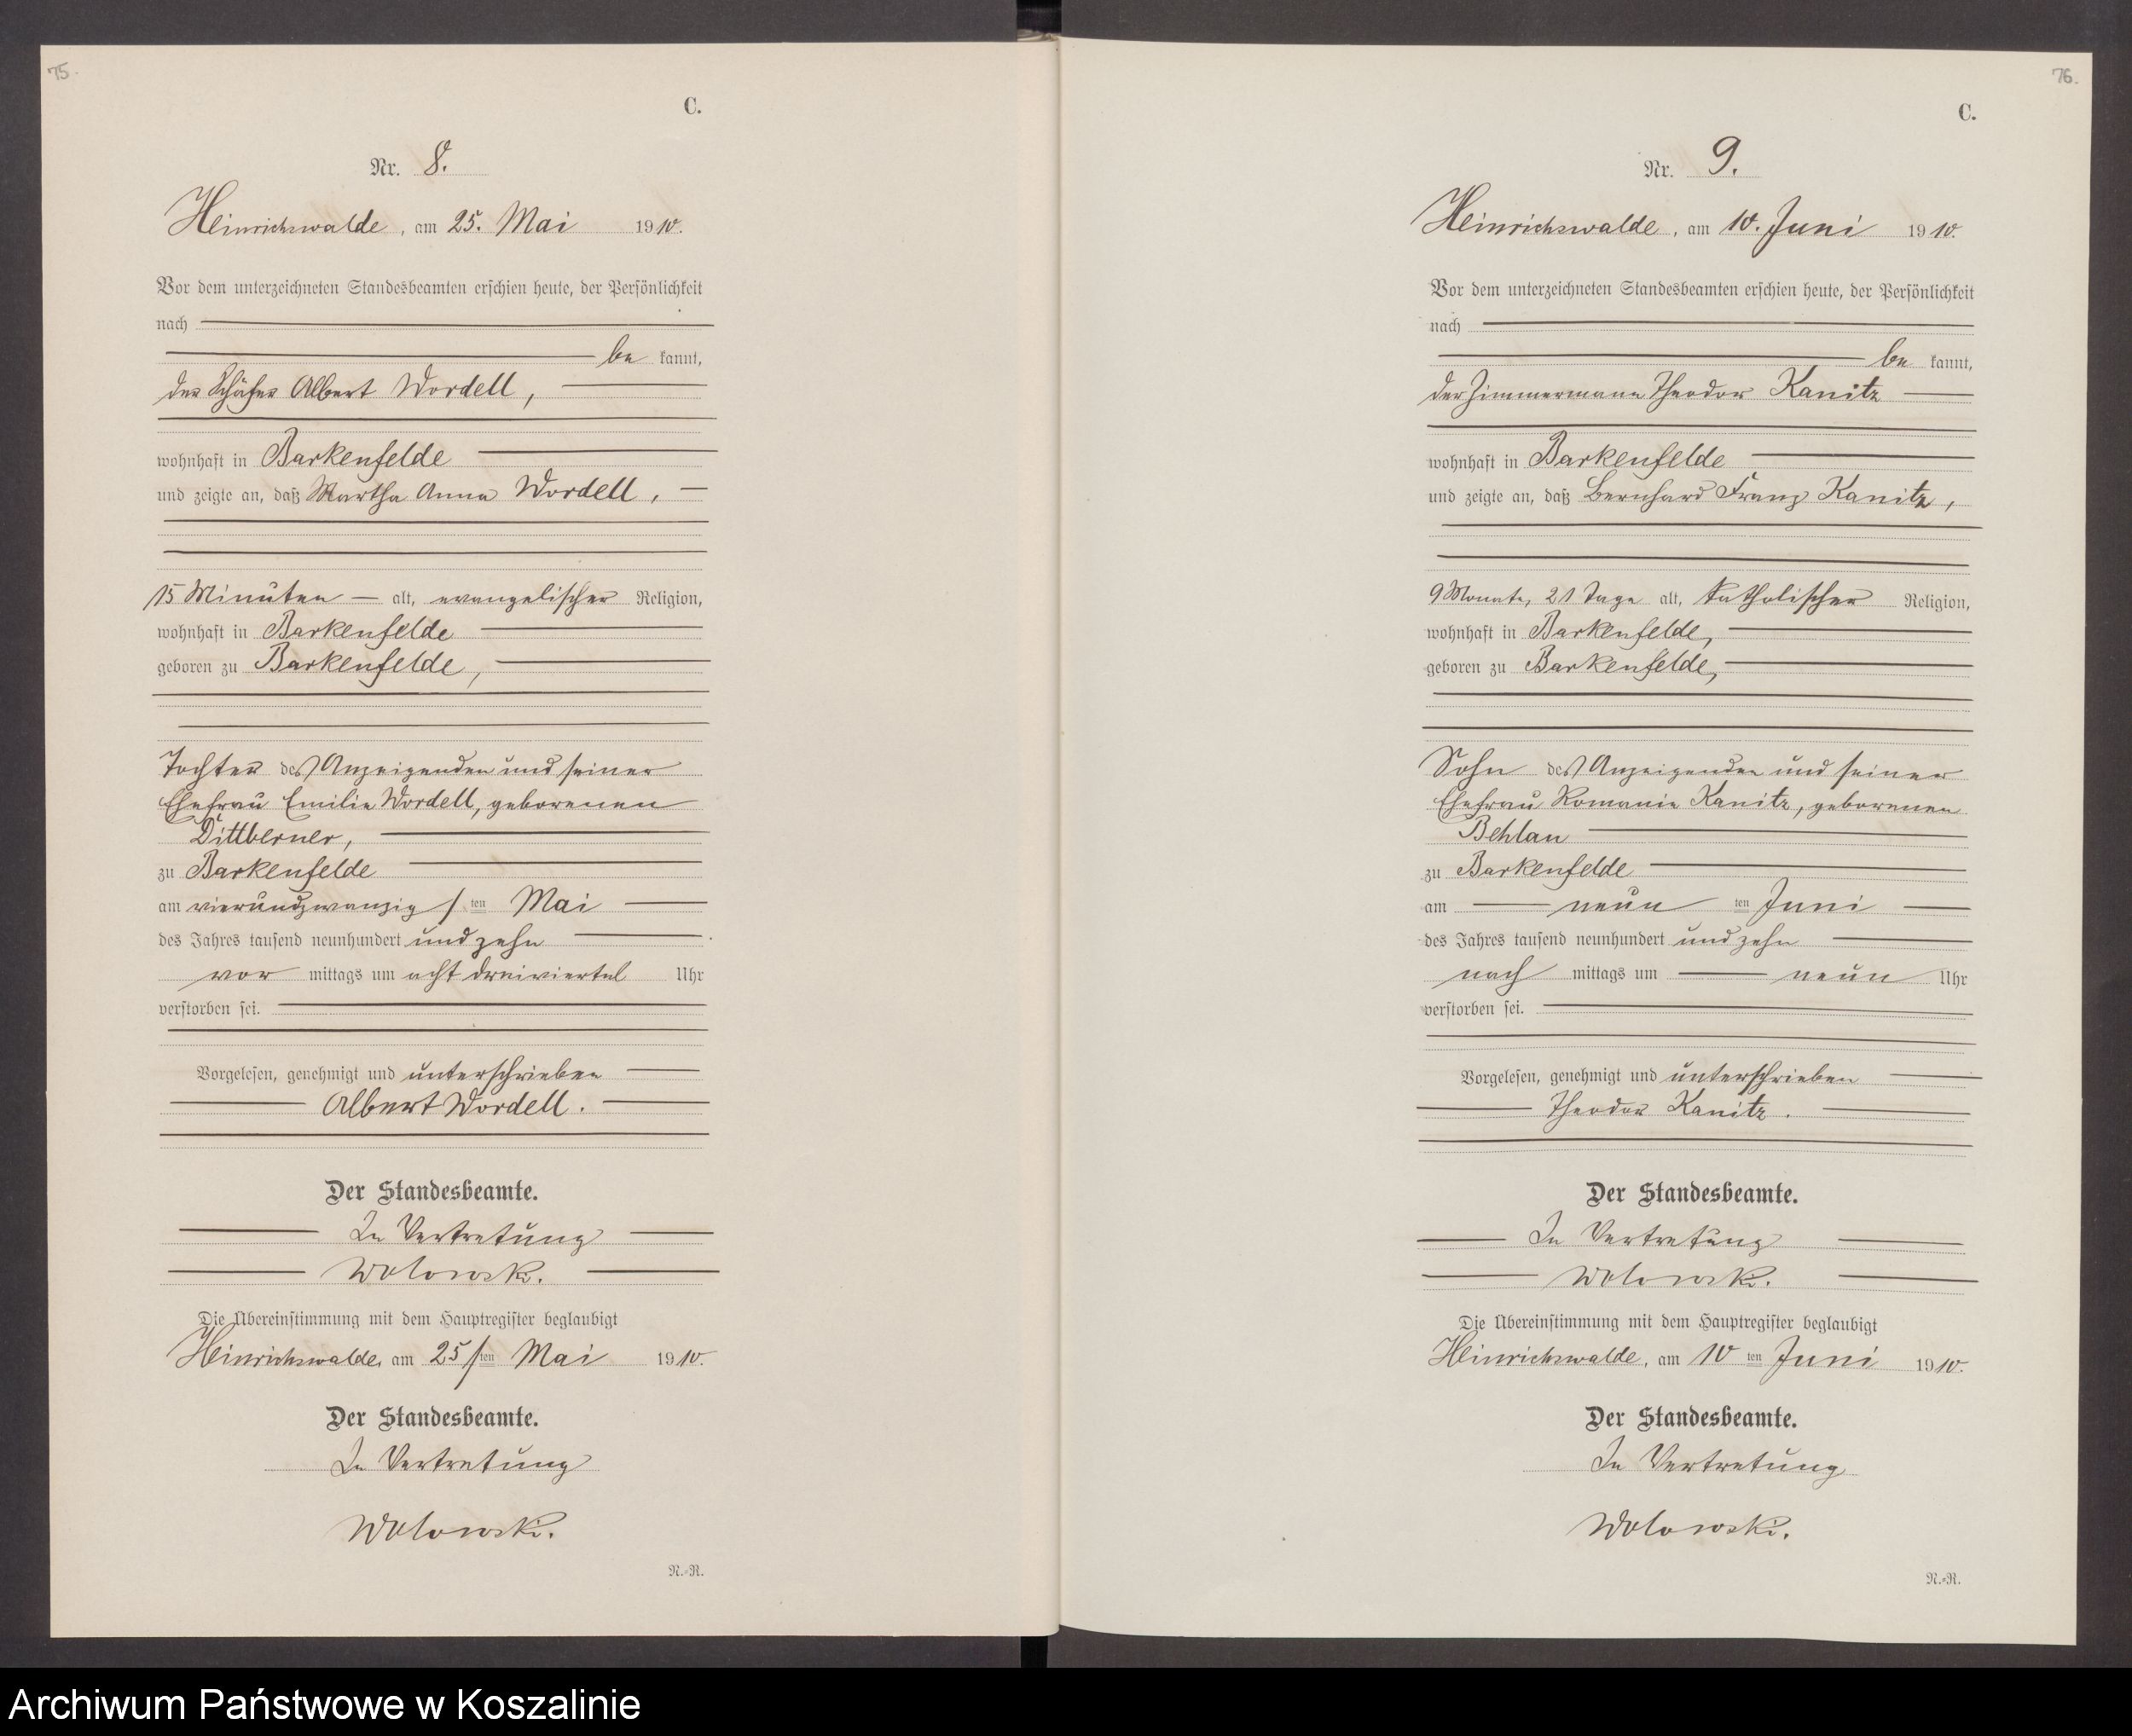 75.
C.
Nr. 8.
Heinrichswalde, am 25. Mai 1910.
Vor dem unterzeichneten Standesbeamten erschien heute, der Persönlichkeit
nach
be kannt,
der Schäfer Albert Wordell,
wohnhaft in Barkenfelde
und zeigte an, daß Martha Anna Wordell,
15 Minuten alt, evangelischer Religion,
wohnhaft in Barkenfelde
geboren zu Barkenfelde,
Tochter des Anzeigenden und seiner
Ehefrau Emilie Wordell, geborenen
Dittberner,
zu Barkenfelde
am vierundzwanzig ten Mai
des Jahres tausend neunhundert und zehn
vor mittags um acht dreiviertel Uhr
verstorben sei.
Vorgelesen, genehmigt und unterschrieben
Albert Wordell.
Der Standesbeamte.
In Vertretung
Wolowski.
Die Übereinstimmung mit dem Hauptregister beglaubigt
Heinrichswalde, am 25 ten Mai 1910.
Der Standesbeamte.
In Vertretung
Wolowski.
N.-R.
76.
C.
Nr. 9.
Heinrichswalde, am 10. Juni 1910.
Vor dem unterzeichneten Standesbeamten erschien heute, der Persönlichkeit
nach
be kannt,
der Zimmermann Theodor Kanitz
wohnhaft in Barkenfelde
und zeigte an, daß Bernhard Franz Kanitz,
9 Monate, 21 Tage alt, katholischer Religion,
wohnhaft in Barkenfelde,
geboren zu Barkenfelde,
Sohn des Anzeigenden und seiner
Ehefrau Romanie Kanitz, geborenen
Behlau
zu Barkenfelde
am neun ten Juni
des Jahres tausend neunhundert und zehn
nach mittags um neun Uhr
verstorben sei.
Vorgelesen, genehmigt und unterschrieben
Theodor Kanitz.
Der Standesbeamte.
In Vertretung
Wolowski.
Die Übereinstimmung mit dem Hauptregister beglaubigt
Heinrichswalde, am 10 ten Juni 1910.
Der Standesbeamte.
In Vertretung
Wolowski.
N.-R.
Archiwum Państwowe w Koszalinie